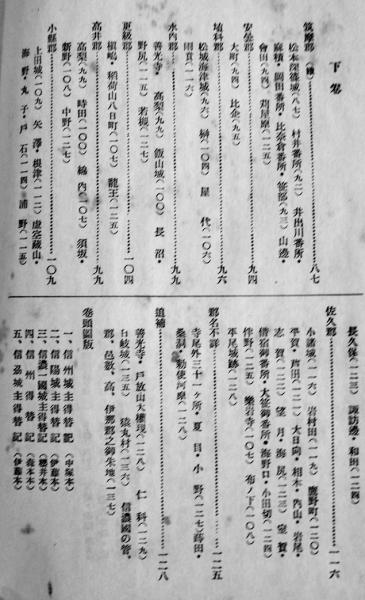 下巻
筑摩郡（續）……八七
松本深志城（八七）　村井番所（九二）　井出川番所
麻積・岡田番所・比奈倉番所・笹部（九三）　山邊・
會田（九四）　苅屋原（一二五）
安曇郡……九四
大町（九四）　比金（九五）
埴科郡……九六
松城海津城（九六）　榊（一〇四）　屋代（一〇六）
雨宮（一一六）
水内郡……九九
善光寺・　高梨（九九）　飯山城（一〇〇）　長沼・
野尻（一一五）　若槻（一二七）
更級郡……一〇四
稲荷山八日町（一〇七）　龍王（一二五）
高井郡……九九
高梨（九九）　時田（一〇〇）　綿内（一〇七）　須坂・
新野（一〇八）　中野（一二七）
小縣郡……一〇九
上田城（一〇九）　矢澤・根津（一一二）　虚空蔵山・
海野・丸子・戸石（一一四）　浦野（一一五）
長久保（一二三）　諏訪邊・和田（一二四）
佐久郡……一一六
小諸城（一一六）　岩村田（一一九）　鷹野町（一二〇）
平賀・蘆田（一二一）　大日向・相木・内山・岩尾・
志賀（一二二）　望月・海尻（一二三）　室賀・
借宿御番所・大笹御番所・海野口・小田切（一二四）
作野（一二五）　樂岩寺（一〇七）　布ノ下（一〇八）
平尾城跡（一二八）
郡名不詳……一二五
寺尾外三十一ヶ所・夏目・小野（一二七）蒔田・
桑洞・勅使河原（一二八）
追補……一二八
善光寺・戸放山大權現（一二八）　仁科（一二九）
白岐城（一三五）　猿丸村（一三六）　信濃國の管、
郡、邑數、高、伊那郡之御朱地（一三七）
卷頭圖版
一、信州城主得替記（中塚本）
二、信陽城主得替記（伊藤本）
三、信濃國城主得替記（櫻井本）
四、信州得替記（森本本）
五、信濃城主得替記（伊藤本）